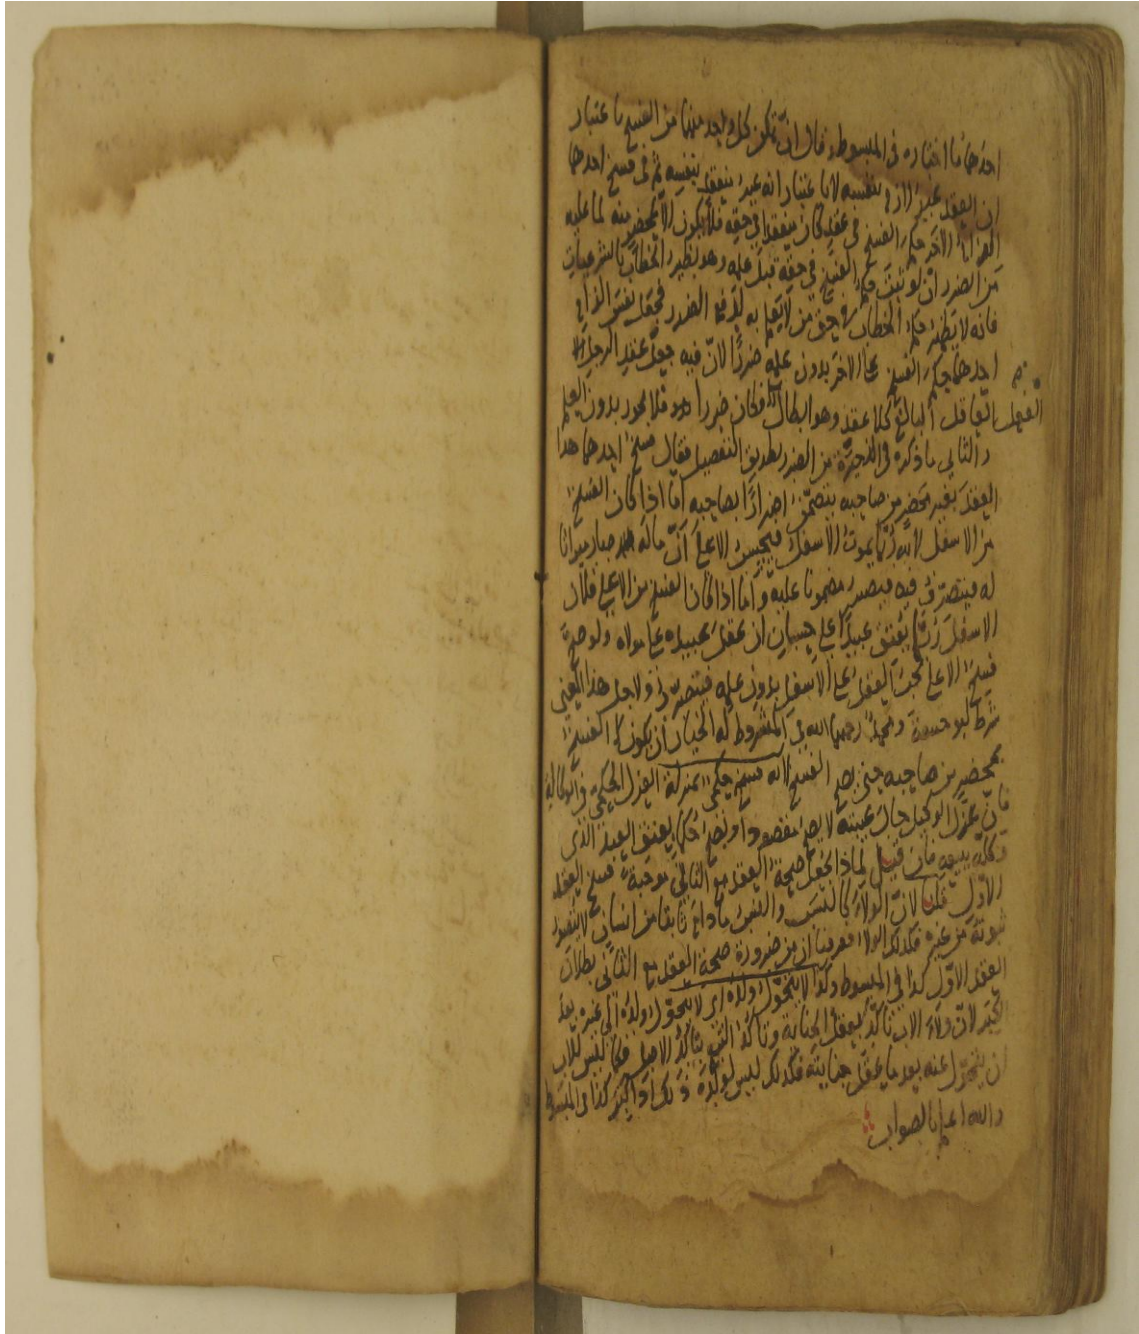 احدهما ما اختاره في المبسوط وقال ان تمكن كل واحد منهما من الفسخ باعتبار
ان العقد غير لازم بنفسه لا باعتبار انه غير منعقد بنفسه ثم في فسخ احدهما
الزام الاخر حكم الفسخ في عقد كان منعقدا في حقه فلا يكون الا بمحضر منه لما عليه
من الضرر ان لو ثبت حكم الفسخ في حقه قبل علمه وهو نظير الخطاب بالشرعيات
فانه لا يظهر حكم الخطاب في حق من لا يعلم به لدفع الضرر فجعل نفس الزام
احدهما حكم الفسخ على الاخر بدون علمه ضررا لان فيه جعل عقد الرجل
العاقل البالغ كلا عقد وهو ابطال فكان ضررا فلا يجوز بدون العلم
والثاني ما ذكره في الذخيرة من الضرر بطريق التفصيل فقال فسخ احدهما هذا
العقد بغير محضر من صاحبه يتضمن اضرارا بصاحبه اما اذا كان الفسخ
من الاسفل لانه ربما يموت الاسفل فيحسب الاعلى ان ماله صار ميراثا
له فيتصرف فيه فيصير مضمونا عليه واما اذا كان الفسخ من الاعلى فلان
الاسفل ربما يعتق عبيدا على حسبان ان عقل عبيده على مولاه ولو صح
فسخ الاعلى يجب العقل على الاسفل بدون علمه فيتضرر ولاجل هذا المعنى
شرط ابو حنيفة ومحمد رحمهما الله في المشروط له الخيار ان يكون الفسخ
بمحضر من صاحبه حتى يصح الفسخ لانه فسخ حكمي بمنزلة العزل الحكمي في الوكالة
فان عزل الوكيل حال غيبته لا يصح مقصودا ويصح حكما يعتق العبد الذي
وكله ببيعه فان قيل لماذا يجعل صحة العقد مع الثاني موجبة فسخ العقد
الاول قلنا لان الولاء كالنسب والنسب ما دام ثابتا من انسان لا يتصور
ثبوته من غيره فكذلك الولاء فعرفنا ان من ضرورة صحة العقد مع الثاني بطلان
العقد الاول كذا في المبسوط وكذا لا يتحول ولده اي لا يتحول ولده الى غيره بعد
الكبر لان ولاء الاب تاكد بعقل الجناية وتاكد التبع بتاكد الاصل فكما ليس للاب
ان يتحول عنه بعد ما عقل جنايته فكذلك ليس لولده ذلك اذا كبر كذا في المبسوط
والله اعلم بالصواب